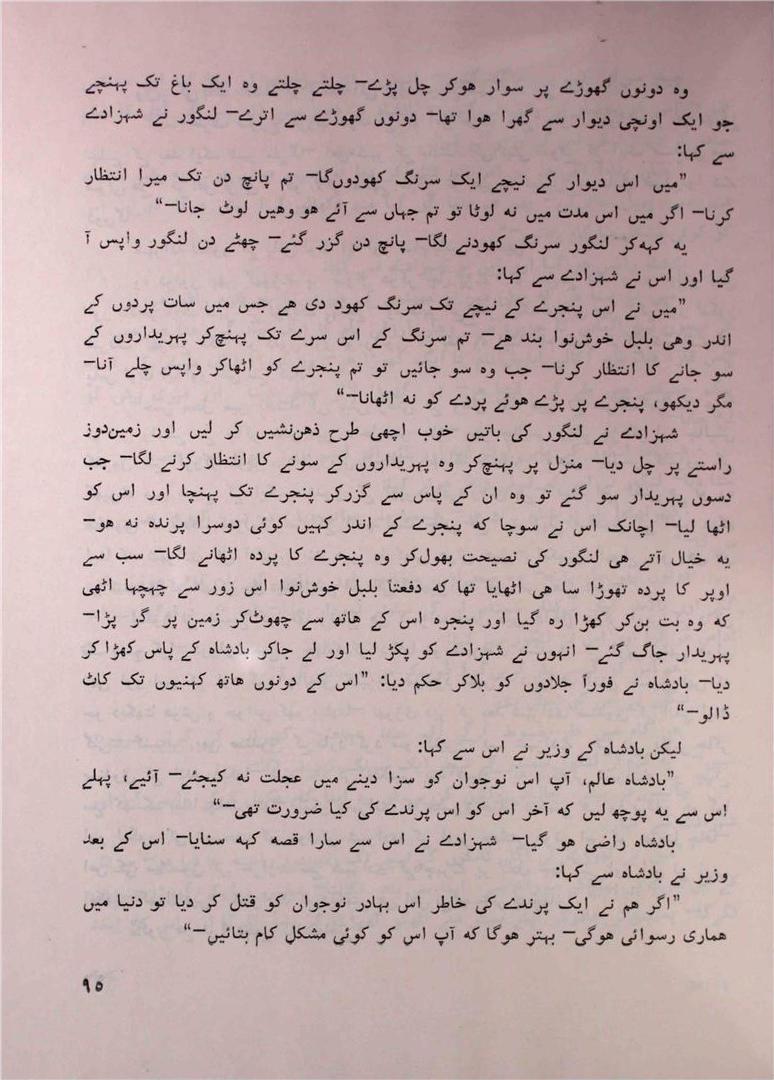 وہ دونوں گھوڑے پر سوار ہوکر چل پڑے— چلتے چلتے وہ ایک باغ تک پہنچے
جو ایک اونچی دیوار سے گھرا ہوا تھا— دونوں گھوڑے سے اترے— لنگور نے شہزادے
سے کہا:
”میں اس دیوار کے نیچے ایک سرنگ کھودوں‌گا— تم پانچ دن تک میرا انتظار
کرنا— اگر میں اس مدت میں نہ لوٹا تو تم جہاں سے آئے ہو وہیں لوٹ جانا—“
یہ کہہ‌کر لنگور سرنگ کھودنے لگا— پانچ دن گزر گئے— چھٹے دن لنگور واپس آ
گیا اور اس نے شہزادے سے کہا:
”میں نے اس پنجرے کے نیچے تک سرنگ کھود دی ہے جس میں سات پردوں کے
اندر وہی بلبل خوش‌نوا بند ہے— تم سرنگ کے اس سرے تک پہنچ‌کر پہریداروں کے
سو جانے کا انتظار کرنا— جب وہ سو جائیں تو تم پنجرے کو اٹھاکر واپس چلے آنا—
مگر دیکھو، پنجرے پر پڑے ہوئے پردے کو نہ اٹھانا—“
شہزادے نے لنگور کی باتیں خوب اچھی طرح ذہن‌نشیں کر لیں اور زمین‌دوز
راستے پر چل دیا— منزل پر پہنچ‌کر وہ پہریداروں کے سونے کا انتظار کرنے لگا— جب
دسوں پہریدار سو گئے تو وہ ان کے پاس سے گزرکر پنجرے تک پہنچا اور اس کو
اٹھا لیا— اچانک اس نے سوچا کہ پنجرے کے اندر کہیں کوئی دوسرا پرندہ نہ ہو—
یہ خیال آتے ہی لنگور کی نصیحت بھول‌کر وہ پنجرے کا پردہ اٹھانے لگا— سب سے
اوپر کا پردہ تھوڑا سا ہی اٹھایا تھا کہ دفعتاً بلبل خوش‌نوا اس زور سے چہچہا اٹھی
کہ وہ بت بن‌کر کھڑا رہ گیا اور پنجرہ اس کے ہاتھ سے چھوٹ‌کر زمین پر گر پڑا—
پہریدار جاگ گئے— انہوں نے شہزادے کو پکڑ لیا اور لے جاکر بادشاہ کے پاس کھڑا کر
دیا— بادشاہ نے فوراً جلادوں کو بلاکر حکم دیا: ”اس کے دونوں ہاتھ کہنیوں تک کاٹ
ڈالو—“
لیکن بادشاہ کے وزیر نے اس سے کہا:
”بادشاہ عالم، آپ اس نوجوان کو سزا دینے میں عجلت نہ کیجئے— آئیے، پہلے
اس سے یہ پوچھ لیں کہ آخر اس کو اس پرندے کی کیا ضرورت تھی—“
بادشاہ راضی ہو گیا— شہزادے نے اس سے سارا قصہ کہہ سنایا— اس کے بعد
وزیر نے بادشاہ سے کہا:
”اگر ہم نے ایک پرندے کی خاطر اس بہادر نوجوان کو قتل کر دیا تو دنیا میں
ہماری رسوائی ہوگی— بہتر ہوگا کہ آپ اس کو کوئی مشکل کام بتائیں—“
۹۵